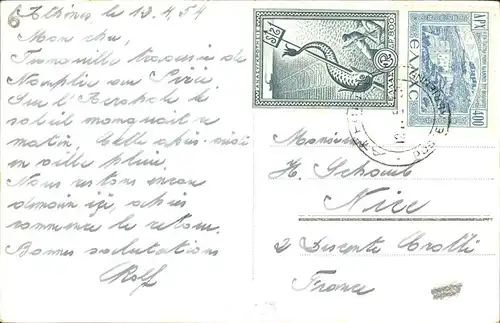 Athènes le 13.4.54
Mon cher,
Tranquille traversée de
Nauplie au Pirée.
Sur l'Acropole le
soleil manquait ce
matin. Cette après-midi
en ville pluie.
Nous restons encore
demain ici, après
commence le retour.
Bonnes salutations
Rolf
Monsieur
H. Schaub
Nice
2 Descente Crotti
France
ΕΛΛΑΣ
400